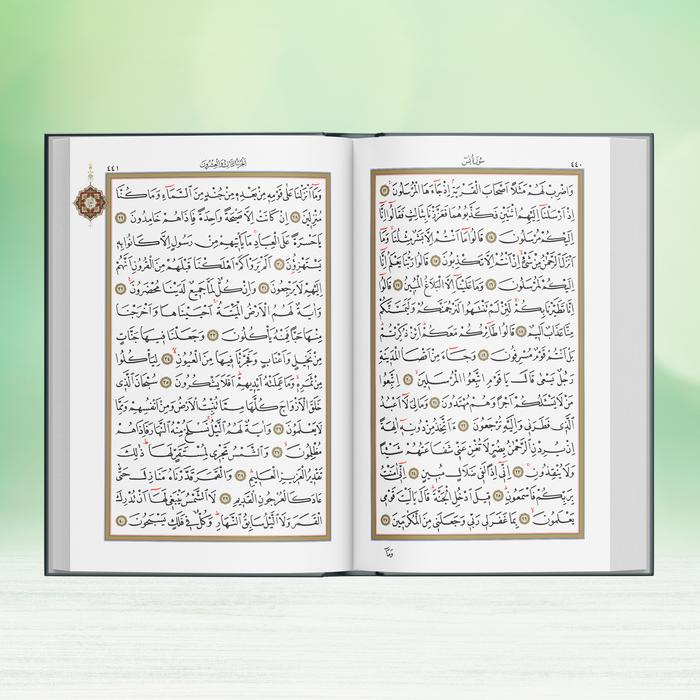 سُورَةُ يٰسٓ ٤٤٠
وَاضْرِبْ لَهُمْ مَثَلًا اَصْحَابَ الْقَرْيَةِ اِذْ جَاءَهَا الْمُرْسَلُونَ ١٣
اِذْ اَرْسَلْنَا اِلَيْهِمُ اثْنَيْنِ فَكَذَّبُوهُمَا فَعَزَّزْنَا بِثَالِثٍ فَقَالُوا اِنَّا
اِلَيْكُمْ مُرْسَلُونَ ١٤ قَالُوا مَا اَنْتُمْ اِلَّا بَشَرٌ مِثْلُنَا وَمَا
اَنْزَلَ الرَّحْمٰنُ مِنْ شَيْءٍ اِنْ اَنْتُمْ اِلَّا تَكْذِبُونَ ١٥ قَالُوا رَبُّنَا يَعْلَمُ اِنَّا
اِلَيْكُمْ لَمُرْسَلُونَ ١٦ وَمَا عَلَيْنَا اِلَّا الْبَلَاغُ الْمُبِينُ ١٧ قَالُوا
اِنَّا تَطَيَّرْنَا بِكُمْ لَئِنْ لَمْ تَنْتَهُوا لَنَرْجُمَنَّكُمْ وَلَيَمَسَّنَّكُمْ
مِنَّا عَذَابٌ اَلِيمٌ ١٨ قَالُوا طَائِرُكُمْ مَعَكُمْ اَئِنْ ذُكِّرْتُمْ
بَلْ اَنْتُمْ قَوْمٌ مُسْرِفُونَ ١٩ وَجَاءَ مِنْ اَقْصَا الْمَدِينَةِ
رَجُلٌ يَسْعٰى قَالَ يَا قَوْمِ اتَّبِعُوا الْمُرْسَلِينَ ٢٠ اِتَّبِعُوا
مَنْ لَا يَسْئَلُكُمْ اَجْرًا وَهُمْ مُهْتَدُونَ ٢١ وَمَا لِيَ لَا اَعْبُدُ
الَّذِي فَطَرَنِي وَاِلَيْهِ تُرْجَعُونَ ٢٢ ءَاَتَّخِذُ مِنْ دُونِهِ اٰلِهَةً
اِنْ يُرِدْنِ الرَّحْمٰنُ بِضُرٍّ لَا تُغْنِ عَنِّي شَفَاعَتُهُمْ شَيْئًا
وَلَا يُنْقِذُونِ ٢٣ اِنِّي اِذًا لَفِي ضَلَالٍ مُبِينٍ ٢٤ اِنِّي اٰمَنْتُ
بِرَبِّكُمْ فَاسْمَعُونِ ٢٥ قِيلَ ادْخُلِ الْجَنَّةَ قَالَ يَا لَيْتَ قَوْمِي
يَعْلَمُونَ ٢٦ بِمَا غَفَرَ لِي رَبِّي وَجَعَلَنِي مِنَ الْمُكْرَمِينَ ٢٧
وَمَا
اَلْجُزْءُ الثَّالِثُ وَالْعِشْرُونَ ٤٤١
وَمَا اَنْزَلْنَا عَلٰى قَوْمِهِ مِنْ بَعْدِهِ مِنْ جُنْدٍ مِنَ السَّمَاءِ وَمَا كُنَّا
مُنْزِلِينَ ٢٨ اِنْ كَانَتْ اِلَّا صَيْحَةً وَاحِدَةً فَاِذَا هُمْ خَامِدُونَ ٢٩
يَا حَسْرَةً عَلَى الْعِبَادِ مَا يَأْتِيهِمْ مِنْ رَسُولٍ اِلَّا كَانُوا بِهِ
يَسْتَهْزِؤُنَ ٣٠ اَلَمْ يَرَوْا كَمْ اَهْلَكْنَا قَبْلَهُمْ مِنَ الْقُرُونِ اَنَّهُمْ
اِلَيْهِمْ لَا يَرْجِعُونَ ٣١ وَاِنْ كُلٌّ لَمَّا جَمِيعٌ لَدَيْنَا مُحْضَرُونَ ٣٢
وَاٰيَةٌ لَهُمُ الْاَرْضُ الْمَيْتَةُ اَحْيَيْنَاهَا وَاَخْرَجْنَا
مِنْهَا حَبًّا فَمِنْهُ يَأْكُلُونَ ٣٣ وَجَعَلْنَا فِيهَا جَنَّاتٍ
مِنْ نَخِيلٍ وَاَعْنَابٍ وَفَجَّرْنَا فِيهَا مِنَ الْعُيُونِ ٣٤ لِيَأْكُلُوا
مِنْ ثَمَرِهِ وَمَا عَمِلَتْهُ اَيْدِيهِمْ اَفَلَا يَشْكُرُونَ ٣٥ سُبْحَانَ الَّذِي
خَلَقَ الْاَزْوَاجَ كُلَّهَا مِمَّا تُنْبِتُ الْاَرْضُ وَمِنْ اَنْفُسِهِمْ وَمِمَّا
لَا يَعْلَمُونَ ٣٦ وَاٰيَةٌ لَهُمُ الَّيْلُ نَسْلَخُ مِنْهُ النَّهَارَ فَاِذَا هُمْ
مُظْلِمُونَ ٣٧ وَالشَّمْسُ تَجْرِي لِمُسْتَقَرٍّ لَهَا ذٰلِكَ
تَقْدِيرُ الْعَزِيزِ الْعَلِيمِ ٣٨ وَالْقَمَرَ قَدَّرْنَاهُ مَنَازِلَ حَتّٰى
عَادَ كَالْعُرْجُونِ الْقَدِيمِ ٣٩ لَا الشَّمْسُ يَنْبَغِي لَهَا اَنْ تُدْرِكَ
الْقَمَرَ وَلَا الَّيْلُ سَابِقُ النَّهَارِ وَكُلٌّ فِي فَلَكٍ يَسْبَحُونَ ٤٠